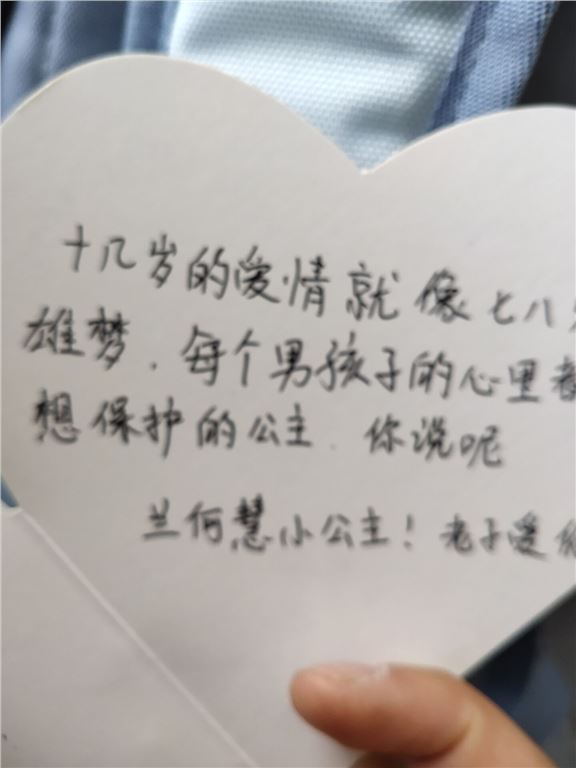 十几岁的爱情就像七八
雄梦，每个男孩子的心里都
想保护的公主．你说呢
兰何慧小公主！老子爱你